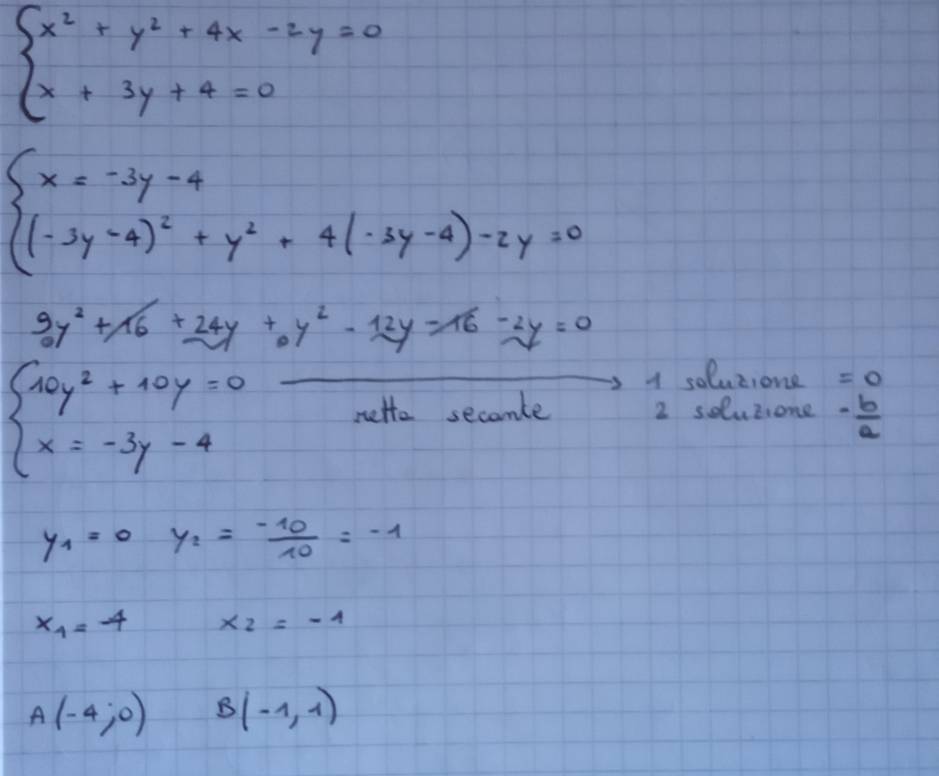 x² + y² + 4x - 2y = 0
x + 3y + 4 = 0
x = -3y - 4
(-3y - 4)² + y² + 4(-3y - 4) - 2y = 0
9y² + 16 + 24y + y² - 12y - 16 - 2y = 0
10y² + 10y = 0 → 1 soluzione = 0
retta secante 2 soluzione - b/a
x = -3y - 4
y₁ = 0 y₂ = -10/10 = -1
x₁ = -4 x₂ = -1
A(-4;0) B(-1,1)